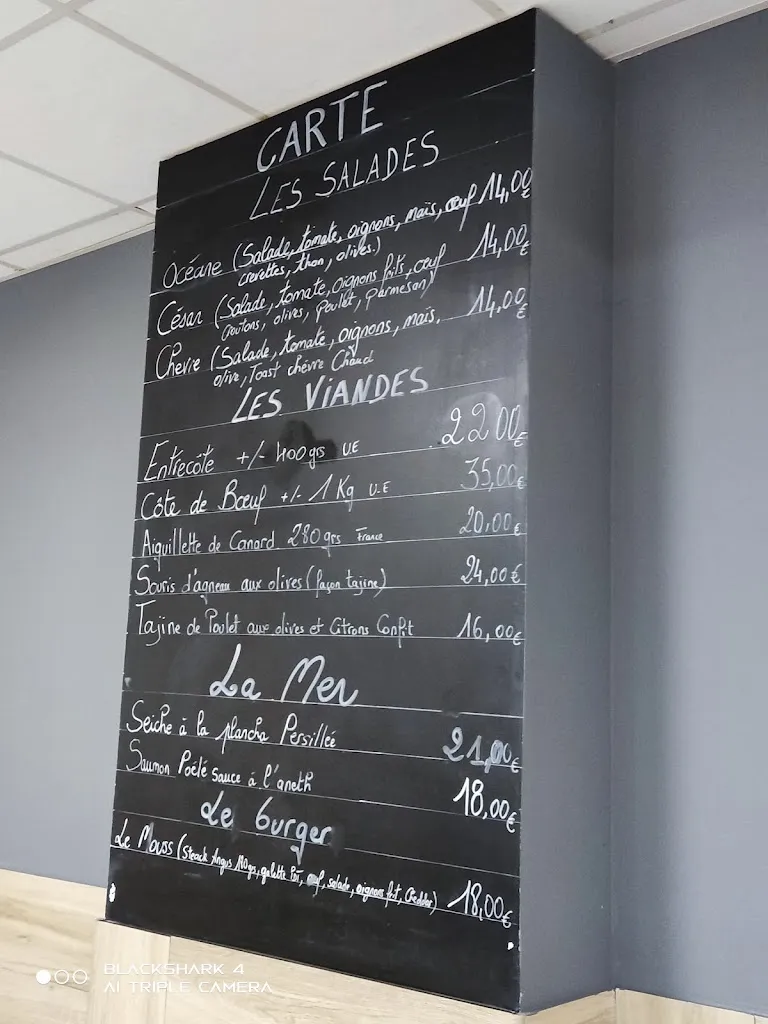 CARTE
LES SALADES
Océane (Salade, tomate, oignons, maïs, œuf 14,00€
crevettes, thon, olives.)
César (Salade, tomate, oignons frits, œuf 14,00€
croutons, olives, poulet, parmesan)
Chevre (Salade, tomate, oignons, maïs. 14,00€
olive, Toast chèvre Chaud
LES VIANDES
Entrecôte +/- 400grs UE 22 00€
Côte de Bœuf +/- 1 Kg U.E 35,00€
Aiguillette de Canard 280grs France 20,00€
Souris d'agneau aux olives (façon tajine) 24,00€
Tajine de Poulet aux olives et Citrons Confit 16,00€
La Mer
Seiche à la plancha Persillée 21,00€
Saumon Poêlé sauce à l'aneth 18,00€
Le burger
Le Mouss (Steack Angus 180grs, galette, œuf, salade, oignons frit, Cheddar) 18,00€
BLACKSHARK 4
AI TRIPLE CAMERA